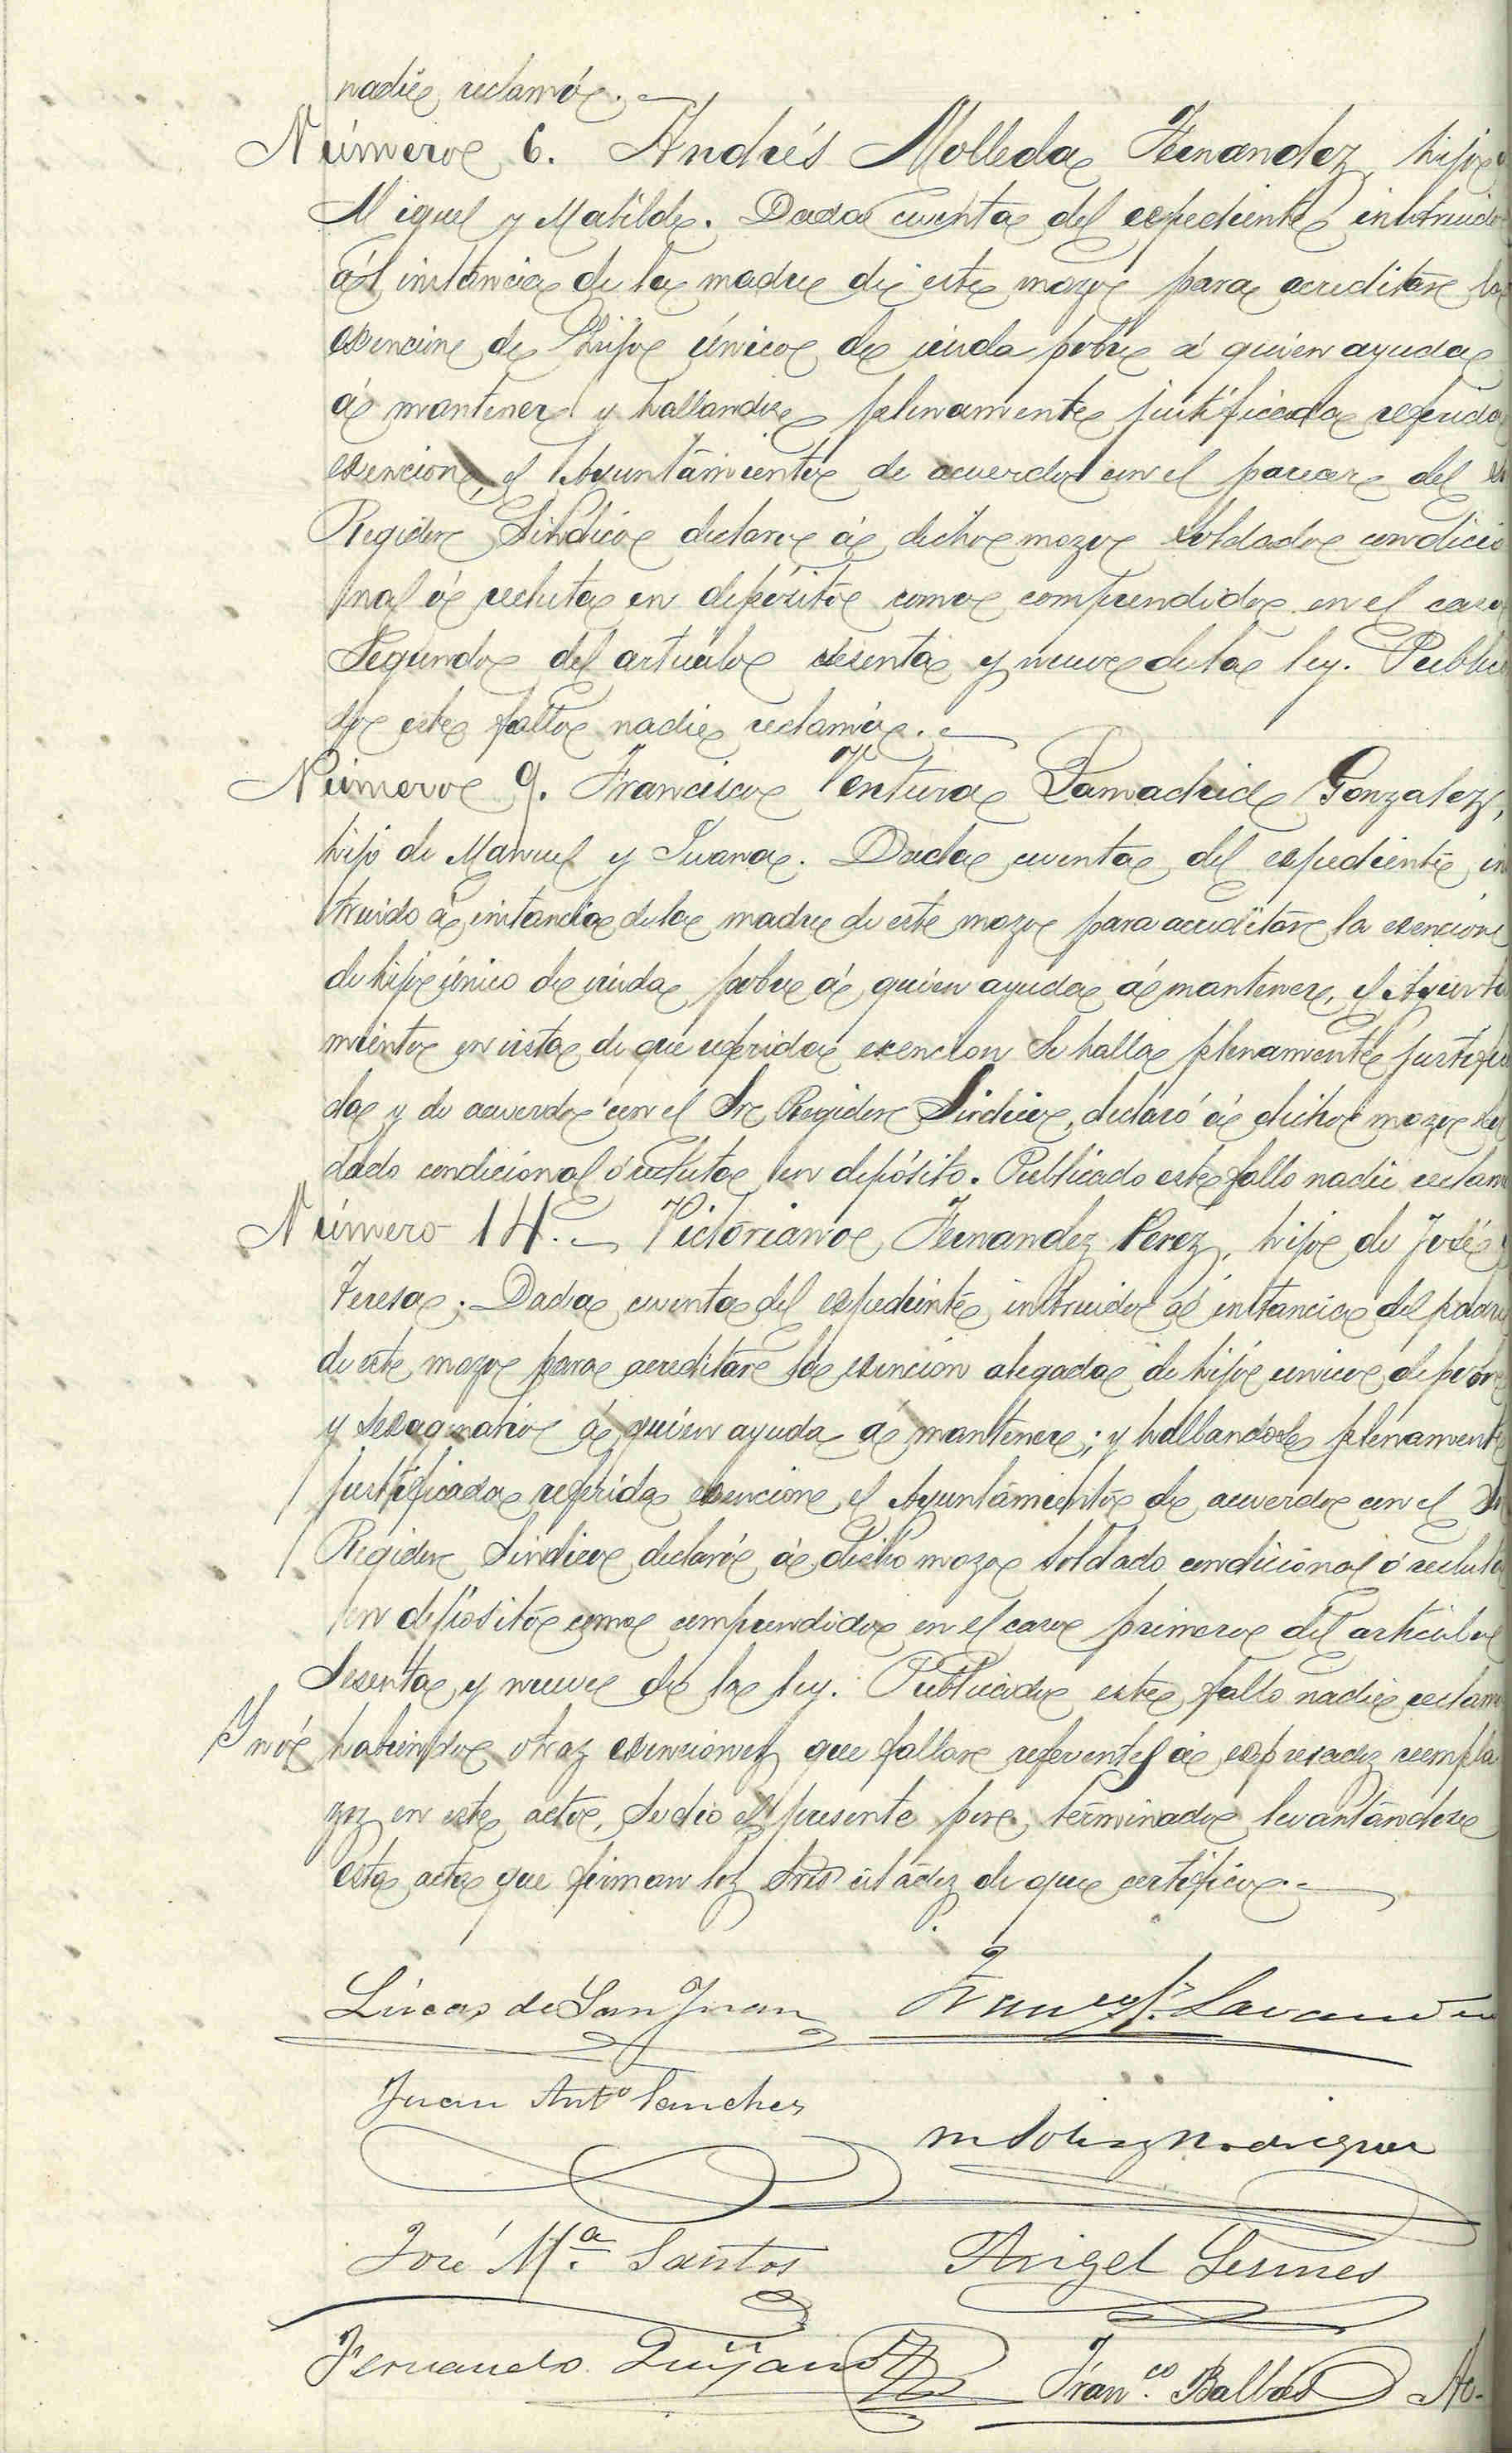 nadie reclamó.
Número 6. Andrés Molleda Fernandez, hijo
Miguel y Matilde. Dada cuenta del espediente instruido
á instancia de la madre de este mozo para acreditar la
esencion de hijo único de viuda pobre á quien ayuda
á mantener y hallandose plenamente justificada referida
esencion, el Ayuntamiento de acuerdo con el parecer del
Regidor Síndico declaró á dicho mozo soldado condicio
nal ó recluta en depósito como comprendido en el caso
segundo del artículo sesenta y nueve de la ley. Publica
do este fallo nadie reclamó.
Número 9. Francisco Ventura Lamadrid Gonzalez,
hijo de Manuel y Juana. Dada cuenta del espediente in
truido á instancia de la madre de este mozo para acreditar la esencion
de hijo único de viuda pobre á quien ayuda á mantener, el Ayunta
miento en vista de que referida esencion se halla plenamente justifica
da y de acuerdo con el Sr Regidor Síndico, declaró á dicho mozo sol
dado condicional ó recluta en depósito. Publicado este fallo nadie reclamó
Número 14. Victoriano Fernandez Perez, hijo de José y
Teresa. Dada cuenta del espediente instruido á instancia del padre
de este mozo para acreditar la esencion alegada de hijo unico de pobre
y sexagenario á quien ayuda á mantener; y hallandose plenamente
justificada referida esencion el Ayuntamiento de acuerdo con el Sr
Regidor Síndico declaró á dicho mozo soldado condicional ó recluta
en depósito como comprendido en el caso primero del artículo
sesenta y nueve de la ley. Publicado este fallo nadie reclamó
Y no habiendo otras esenciones que fallar referentes á espresados reempla
zos en este acto, se dio el presente por terminado levantándose
esta acta que firman los Sres citados de que certifico.
Lúcas de San Juan Franco
Juan Anto Sanchez
Rodriguez
José Ma. Santos Angel
Fernando Quijano Franco. Balbás